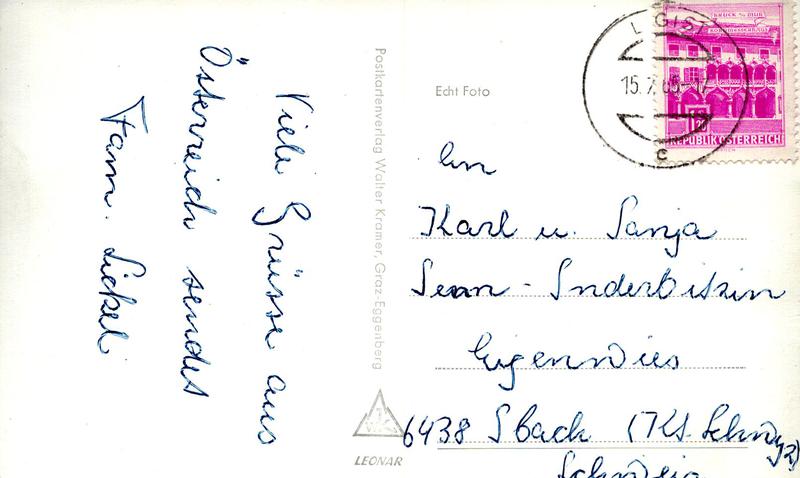 Viele Grüsse aus
Österreich sendet
Fam. Lickel
Postkartenverlag Walter Kramer, Graz-Eggenberg
LEONAR
Echt Foto
LIGIST
15.7.65-17
c
BRUCK a/d MUR
REPUBLIK ÖSTERREICH
An
Karl u. Sonja
Senn-Inderbitzin
Eigenwies
6438 Ibach (Kt. Schwyz)
Schweiz